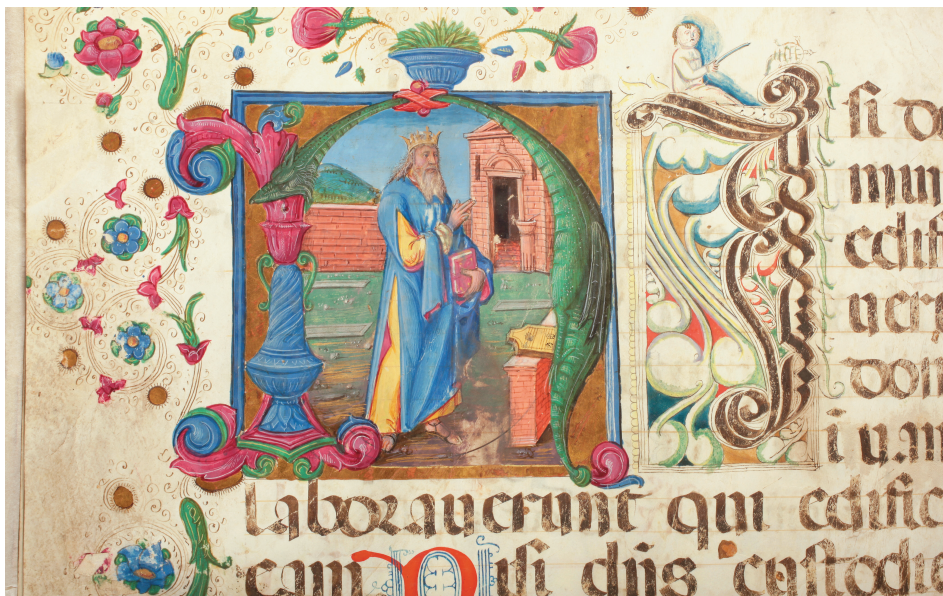 NIsi do
minu
edifi
ueri
dom
i u.in
laborauerunt qui edific
eam Nisi dns custodie